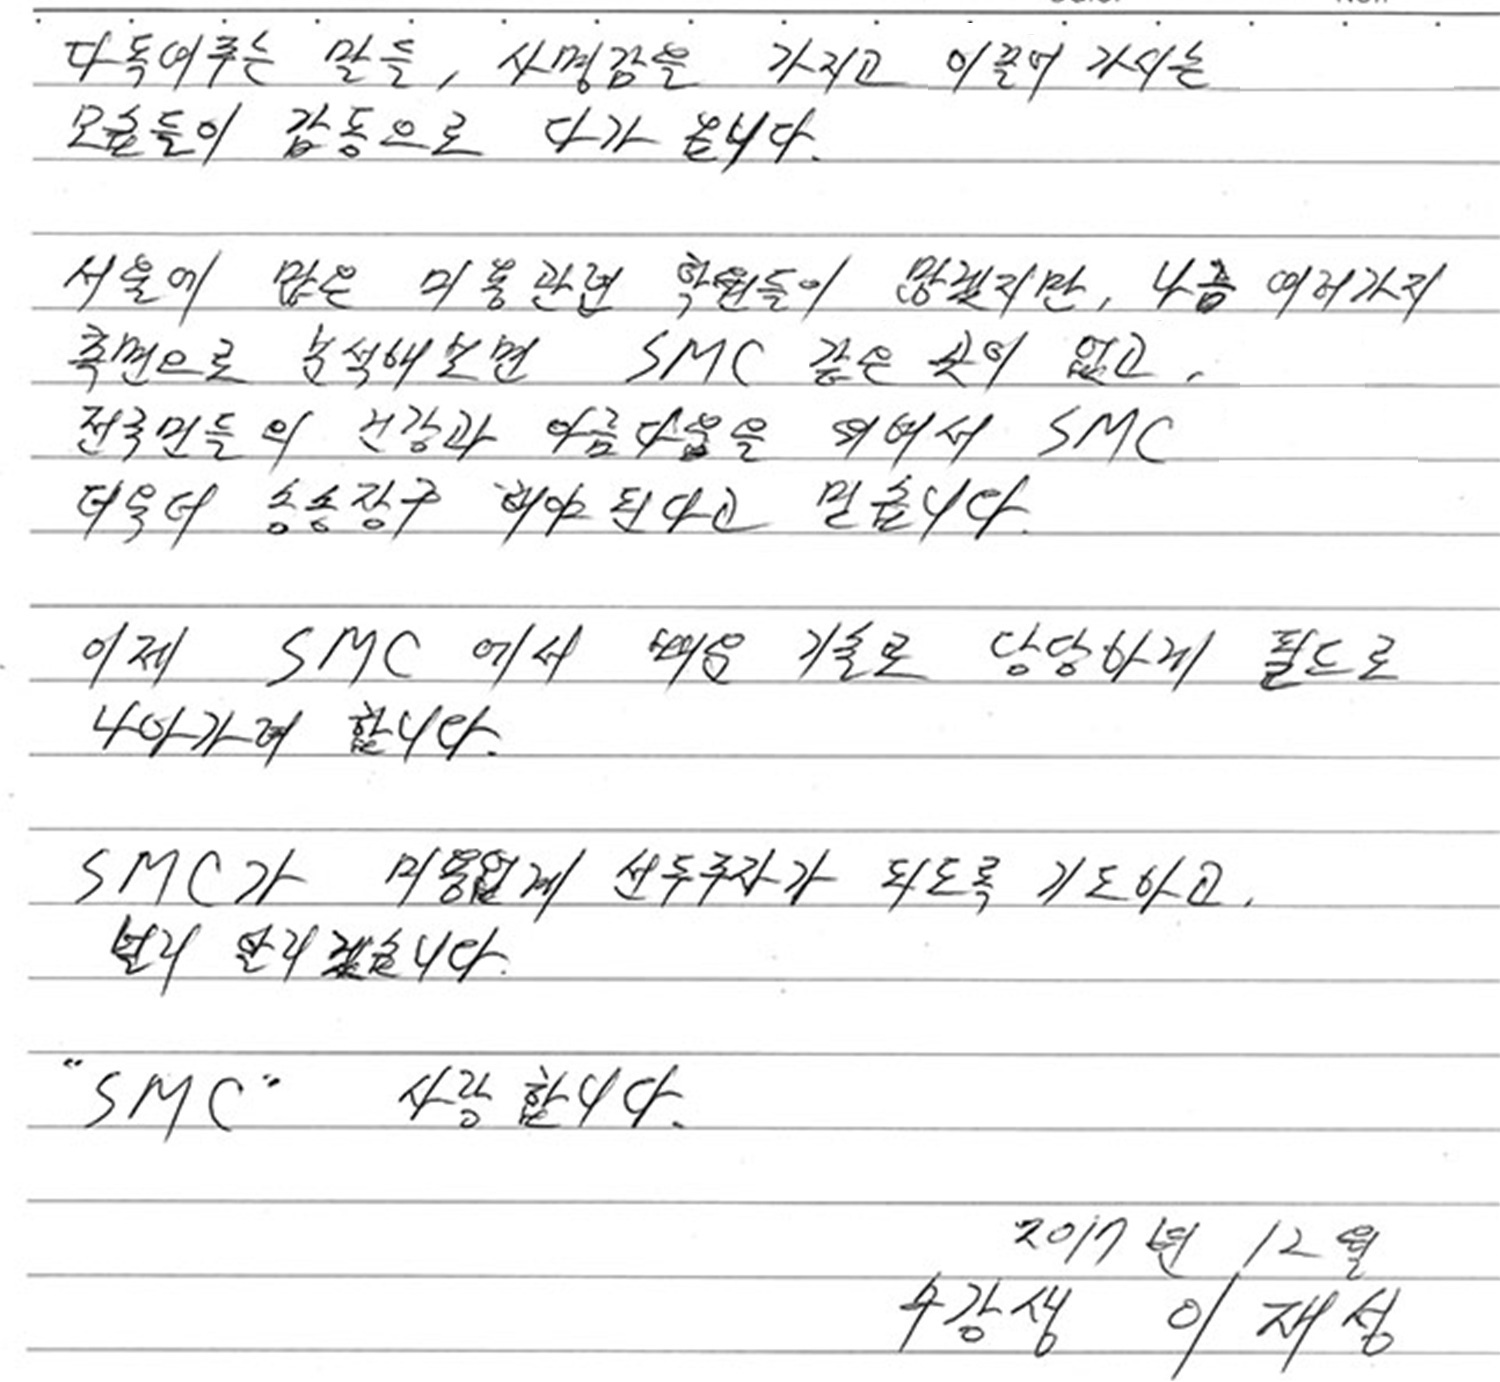 다독여주는 말들, 사명감을 가지고 이끌어 가시는
모습들이 감동으로 다가 옵니다.
서울에 많은 미용관련 학원들이 많겠지만, 나름 여러가지
측면으로 분석해보면 SMC 같은 곳이 없고,
전국민들의 건강과 아름다움을 위해서 SMC
더욱더 승승장구 해야 된다고 믿습니다.
이제 SMC 에서 배운 기술로 당당하게 필드로
나아가려 합니다.
SMC가 미용업계 선두주자가 되도록 기도하고,
널리 알리겠습니다.
"SMC" 사랑합니다.
2017년 12월
수강생 이재성